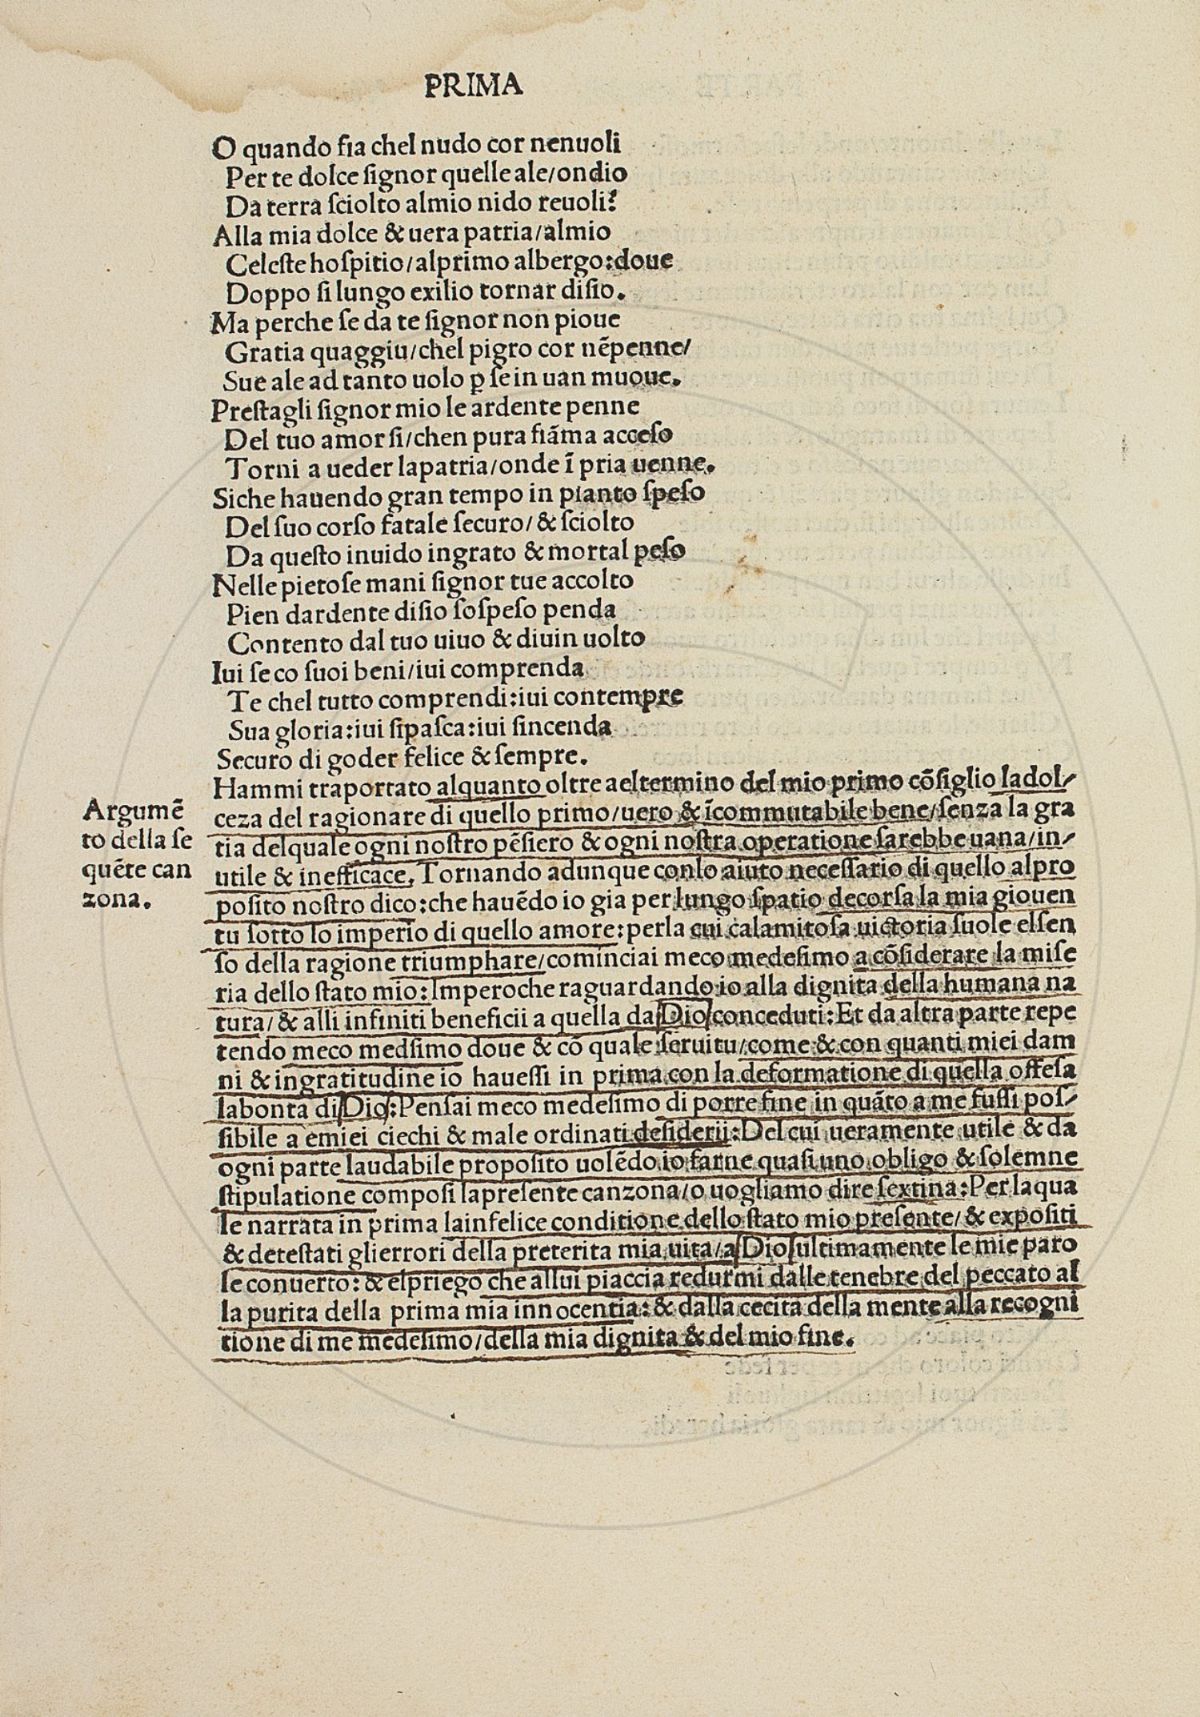 PRIMA
O quando fia chel nudo cor nenuoli
Per te dolce ſignor quelle ale/ondio
Da terra ſciolto almio nido reuoli?
Alla mia dolce & uera patria/almio
Celeſte hoſpitio/alprimo albergo:doue
Doppo ſi lungo exilio tornar diſio.
Ma perche ſe da te ſignor non pioue
Gratia quaggiu/chel pigro cor nēpenne/
Sue ale ad tanto uolo ꝑ ſe in uan muoue.
Preſtagli ſignor mio le ardente penne
Del tuo amor ſi/chen pura fiāma acceſo
Torni a ueder lapatria/onde ī pria uenne.
Siche hauendo gran tempo in pianto ſpeſo
Del ſuo corſo fatale ſecuro/& ſciolto
Da queſto inuido ingrato & mortal peſo
Nelle pietoſe mani ſignor tue accolto
Pien dardente diſio ſoſpeſo penda
Contento dal tuo uiuo & diuin uolto
Iui ſe co ſuoi beni/iui comprenda
Te chel tutto comprendi:iui contempre
Sua gloria:iui ſipaſca:iui ſincenda
Securo di goder felice & ſempre.
Hammi traportato alquanto oltre aeltermino del mio primo cōſiglio ladol/
ceza del ragionare di quello primo/uero & īcommutabile bene/ſenza la gra
tia delquale ogni noſtro pēſiero & ogni noſtra operatione ſarebbe uana/in/
utile & inefficace. Tornando adunque conlo aiuto neceſſario di quello alpro
poſito noſtro dico:che hauēdo io gia per lungo ſpatio decorſa la mia giouen
tu ſotto lo imperio di quello amore:perla cui calamitoſa uictoria ſuole elſen
ſo della ragione triumphare/cominciai meco medeſimo a cōſiderare la miſe
ria dello ſtato mio:Imperoche raguardando io alla dignita della humana na
tura/& alli infiniti beneficii a quella da Dio conceduti:Et da altra parte repe
tendo meco medſimo doue & cō quale ſeruitu/come & con quanti miei dam
ni & ingratitudine io haueſſi in prima con la deformatione di quella offeſa
labonta di Dio:Penſai meco medeſimo di porre fine in quāto a me fuſſi poſ/
ſibile a emiei ciechi & male ordinati deſiderii:Del cui ueramente utile & da
ogni parte laudabile propoſito uolēdo io farne quaſi uno obligo & ſolemne
ſtipulatione compoſi lapreſente canzona/o uogliamo dire ſextina:Per laqua
le narrata in prima lainfelice conditione dello ſtato mio preſente/& expoſiti
& deteſtati glierrori della preterita mia uita/a Dio ultimamente le mie paro
le conuerto:& elpriego che allui piaccia redurmi dalle tenebre del peccato al
la purita della prima mia innocentia:& dalla cecita della mente alla recogni
tione di me medeſimo/della mia dignita & del mio fine.
Argumē
to della ſe
quēte can
zona.